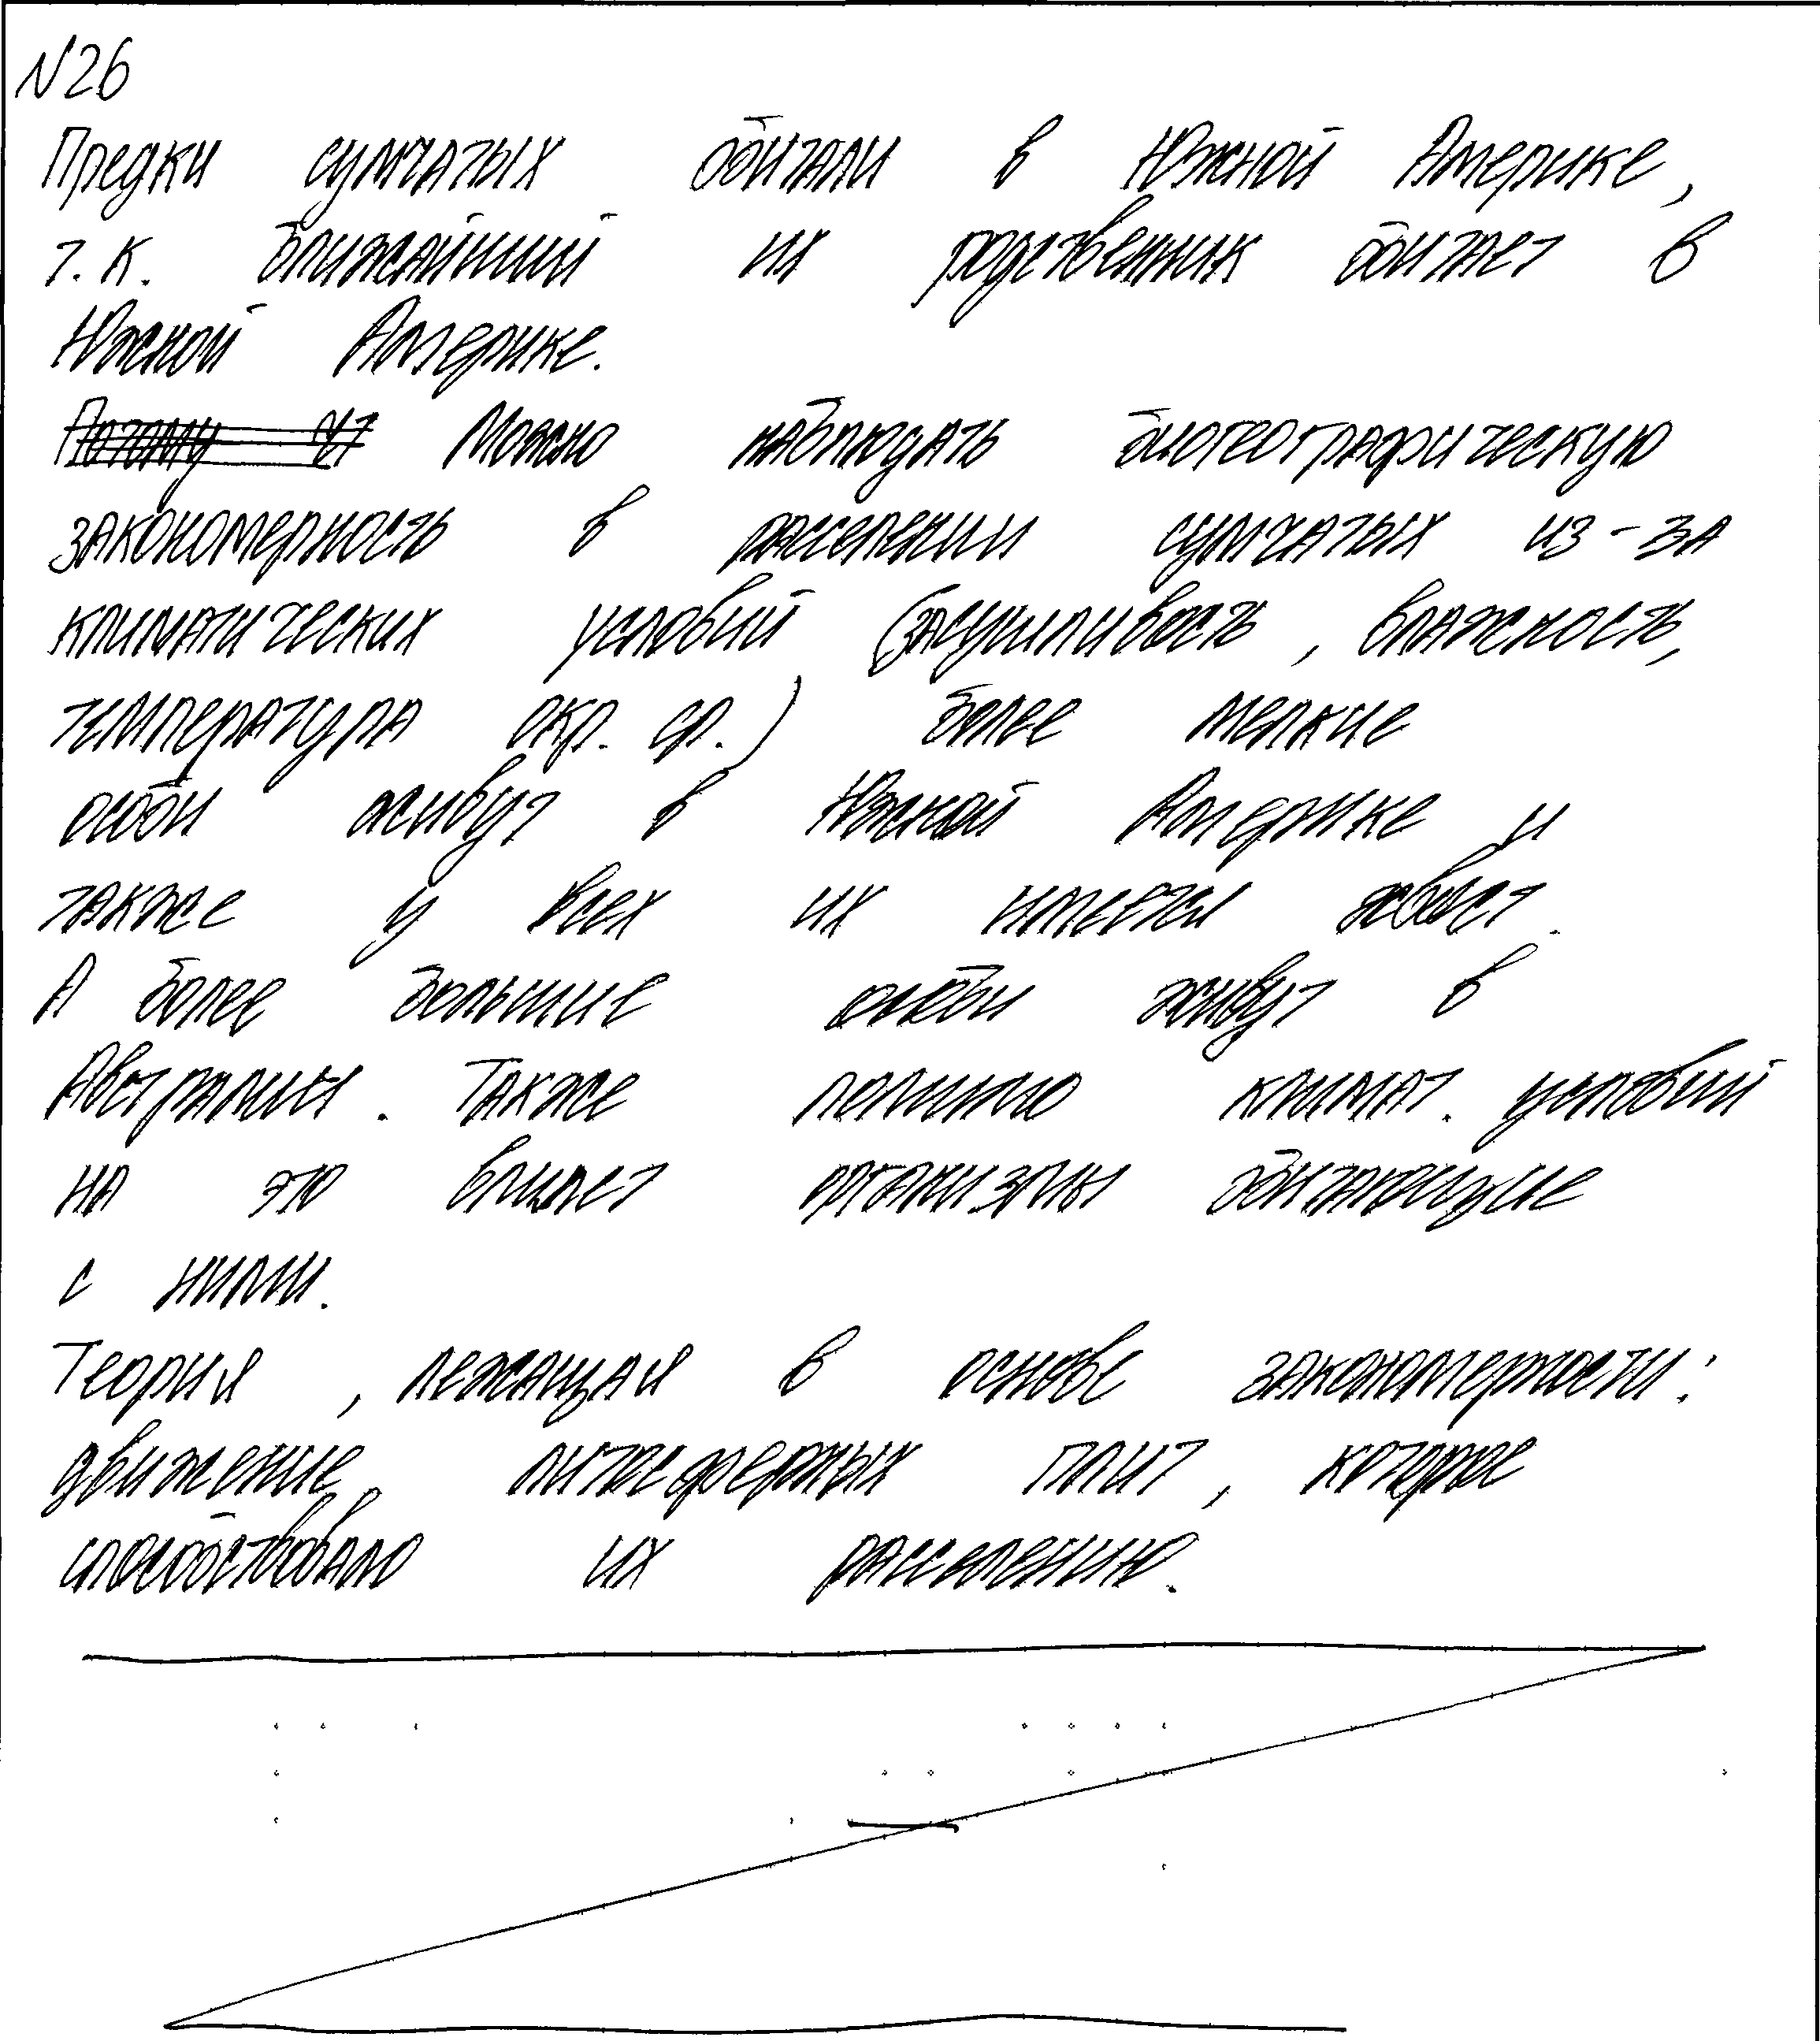 №26
Предки сумчатых обитали в Южной Америке,
т.к. ближайший их родственник обитает в
Южной Америке.
Можно наблюдать биогеографическую
закономерность в расселении сумчатых из-за
климатических условий (засушливость, влажность,
температура окр. ср.) более мелкие
особи живут в Южной Америке и
также у всех их имеется хвост.
А более большие особи живут в
Австралии. Также помимо климат. условий
на это влияет организмы обитающие
с ними.
Теория, лежащая в основе закономерности:
движение литосферных плит, которое
способствовало их расселению.